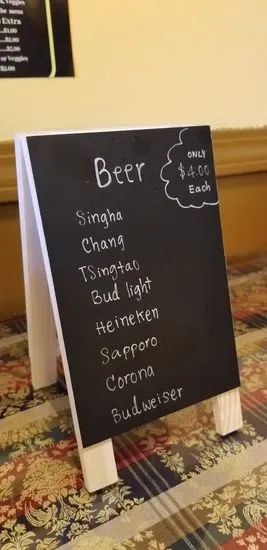 r Veggies
the menu
Extra
$2.00
$2.00
or Veggies
$2.00
Beer
ONLY
$4.00
Each
Singha
Chang
TSingtao
Bud light
Heineken
Sapporo
Corona
Budweiser